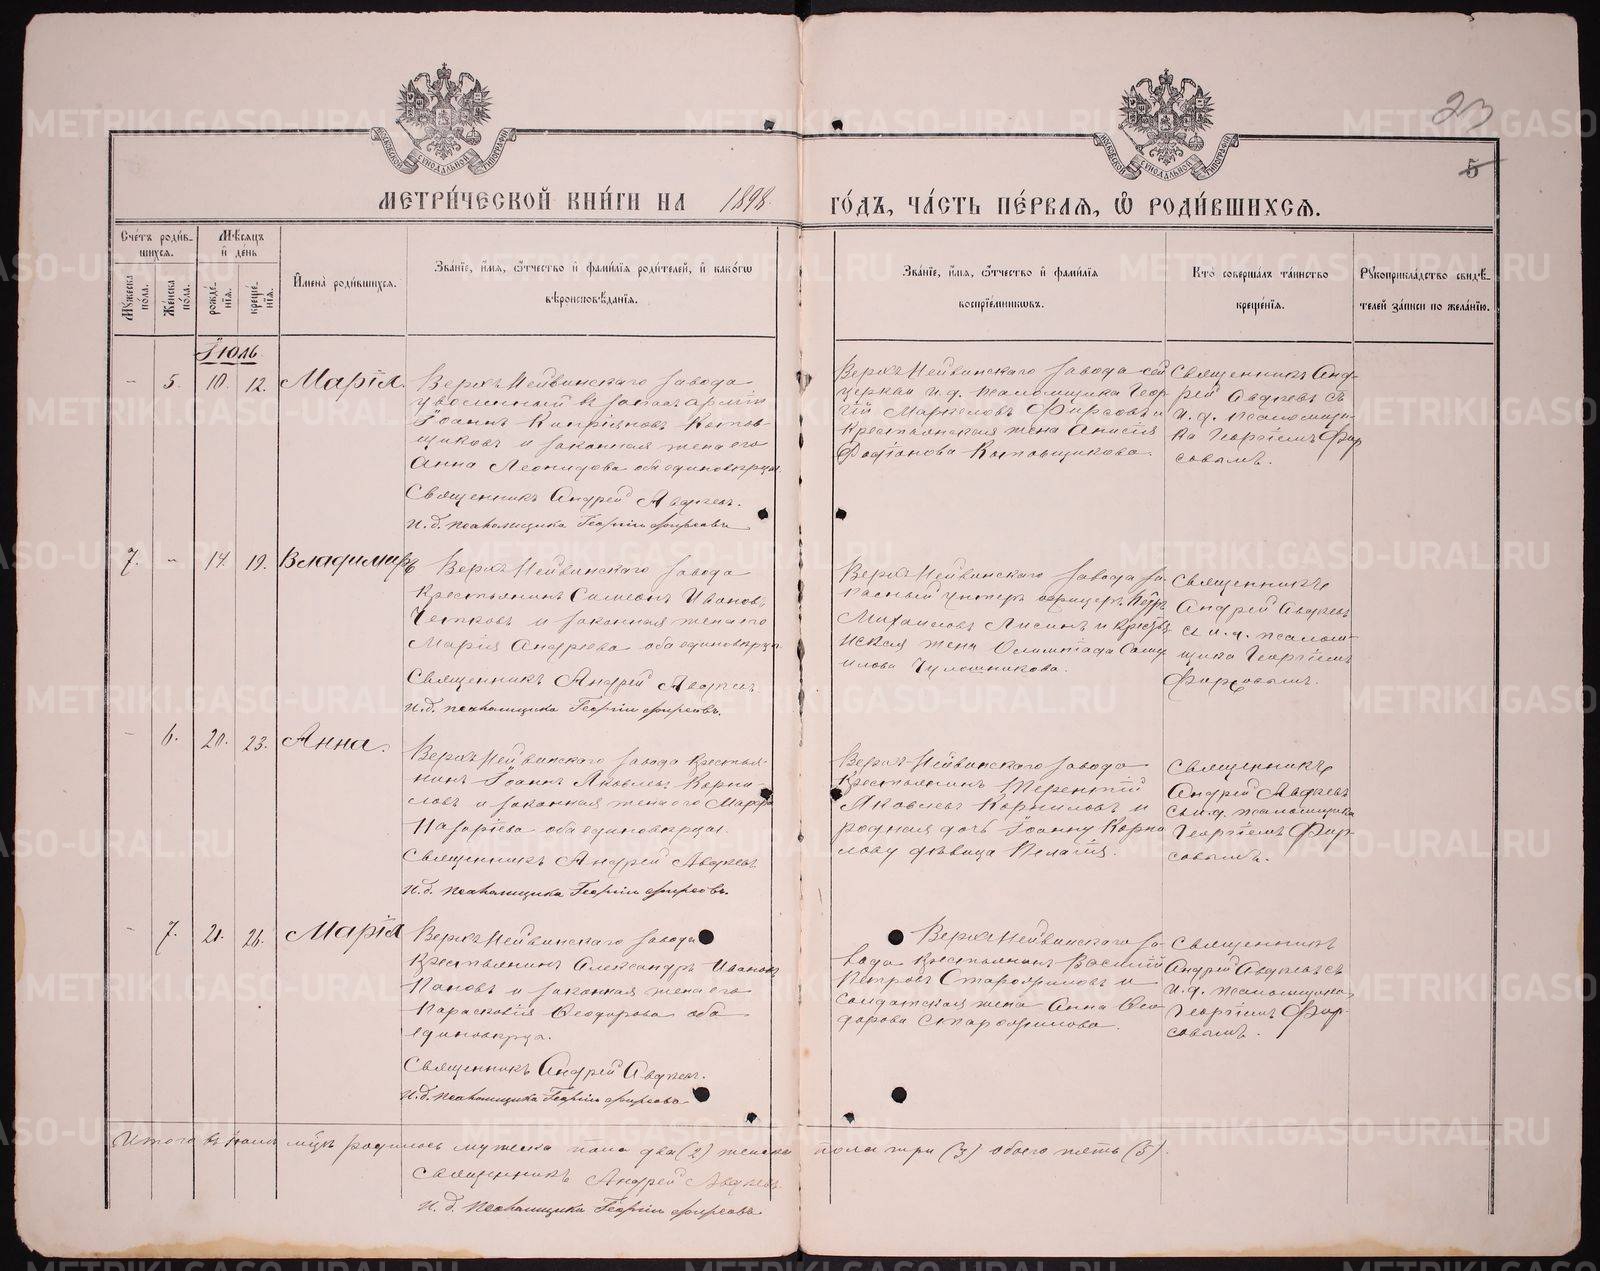 23
5
МОСКОВСКОЙ СѴНОДАЛЬНОЙ ТИПОГРАФІИ
МОСКОВСКОЙ СѴНОДАЛЬНОЙ ТИПОГРАФІИ
МЕТРИ́ЧЕСКОЙ КНИ́ГИ НА 1898 ГО́ДЪ, ЧА́СТЬ ПЕ́РВАЯ, Ѡ РОДИ́ВШИХСЯ.
Счетъ роди́вшихся.
Му́жеска по́ла.
Же́нска по́ла.
Мѣсяцъ и де́нь
рожде́нія.
креще́нія.
Имена̀ роди́вшихся.
Зва́ніе, и́мя, ѻ́тчество и фами́лія роди́телей, и како́гѡ
вѣроисповѣ́данія.
Зва́ніе, и́мя, ѻ́тчество и фами́лія
воспріе́мниковъ.
Кто̀ соверша́лъ та́инство
креще́нія.
Рукоприкла́дство свидѣ́-
телей за́писи по жела́нію.
Іюль
- 5. 10. 12. Марія.
Верхъ Нейвинскаго завода
уволенный въ запасъ арміи
Іоаннъ Кипріяновъ Котов-
щиковъ и законная жена его
Анна Леонидова оба единовѣрцы.
Священникъ Андрей Авдѣевъ.
И. д. псаломщика Георгій Фирсовъ
Верхъ Нейвинскаго завода
церкви и. д. псаломщика Геор-
гій Маркеловъ Фирсовъ и
крестьянская жена Анисія
Котовщикова.
Священникъ Анд-
рей Авдѣевъ съ
и. д. псаломщи-
ка Георгіемъ Фир
совымъ.
7. - 14. 19. Владимиръ
Верхъ Нейвинскаго завода
крестьянинъ Симеонъ Ивановъ
и законная жена его
Марія Андреева оба единовѣрцы.
Священникъ Андрей Авдѣевъ
И. д. псаломщика Георгій Фирсовъ.
Верхъ Нейвинскаго завода за-
пасный унтеръ офицеръ Петръ
Михаиловъ Лисинъ и крестьян
ская жена Олимпіада Саму
илова Чулошникова.
Священникъ
Андрей Авдѣевъ
съ и. д. псалом-
щика Георгіемъ
Фирсовымъ.
- 6. 20. 23. Анна.
Верхъ Нейвинскаго завода крестья-
нинъ Іоаннъ Яковлевъ Корни-
ловъ и законная жена его Марфа
Назаріева оба единовѣрцы.
Священникъ Андрей Авдѣевъ
И. д. псаломщика Георгій Фирсовъ.
Верхъ-Нейвинскаго завода
крестьянинъ Терентій
Яковлевъ Корниловъ и
родная дочь Іоанну Корни
лову дѣвица Пелагія.
Священникъ
Андрей Авдѣевъ
съ и. д. псаломщика
Георгіемъ Фир-
совымъ.
- 7. 21. 26. Марія
Верхъ Нейвинскаго завода
крестьянинъ Александръ Ивановъ
Пановъ и законная жена его
Парасковія Ѳеодорова оба
единовѣрцы.
Священникъ Андрей Авдѣевъ.
И. д. псаломщика Георгій Фирсовъ
Верхъ Нейвинскаго за-
вода крестьянинъ Василій
Петровъ и
солдатская жена Анна Ѳео
дорова
Священникъ
Андрей Авдѣевъ съ
и. д. псаломщика
Георгіемъ Фир-
совымъ.
Итого въ іюлѣ мцѣ родилось мужеска пола два (2) женска пола три (3) обоего пять (5).
Священникъ Андрей Авдѣевъ
И. д. псаломщика Георгій Фирсовъ
METRIKI.GASO-URAL.RU